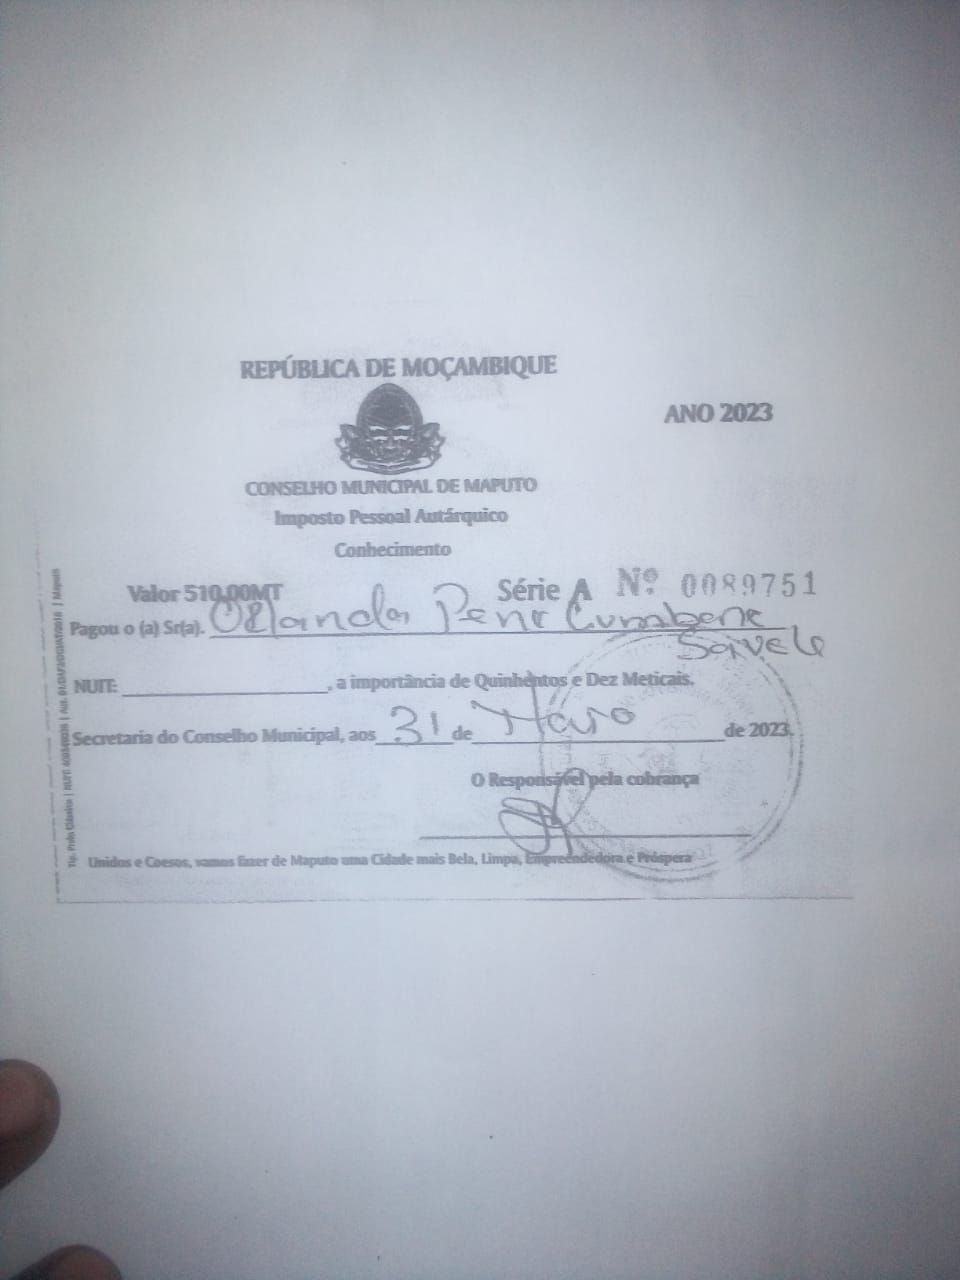 REPÚBLICA DE MOÇAMBIQUE
ANO 2023
CONSELHO MUNICIPAL DE MAPUTO
Imposto Pessoal Autárquico
Conhecimento
Valor 510,00MT Série A Nº 0089751
Pagou o (a) Sr(a). Orlanda Cumbene
NUIT: , a importância de Quinhentos e Dez Meticais.
Secretaria do Conselho Municipal, aos 31 de Maio de 2023.
O Responsável pela cobrança
Unidos e Coesos, vamos fazer de Maputo uma Cidade mais Bela, Limpa, Empreendedora e Próspera